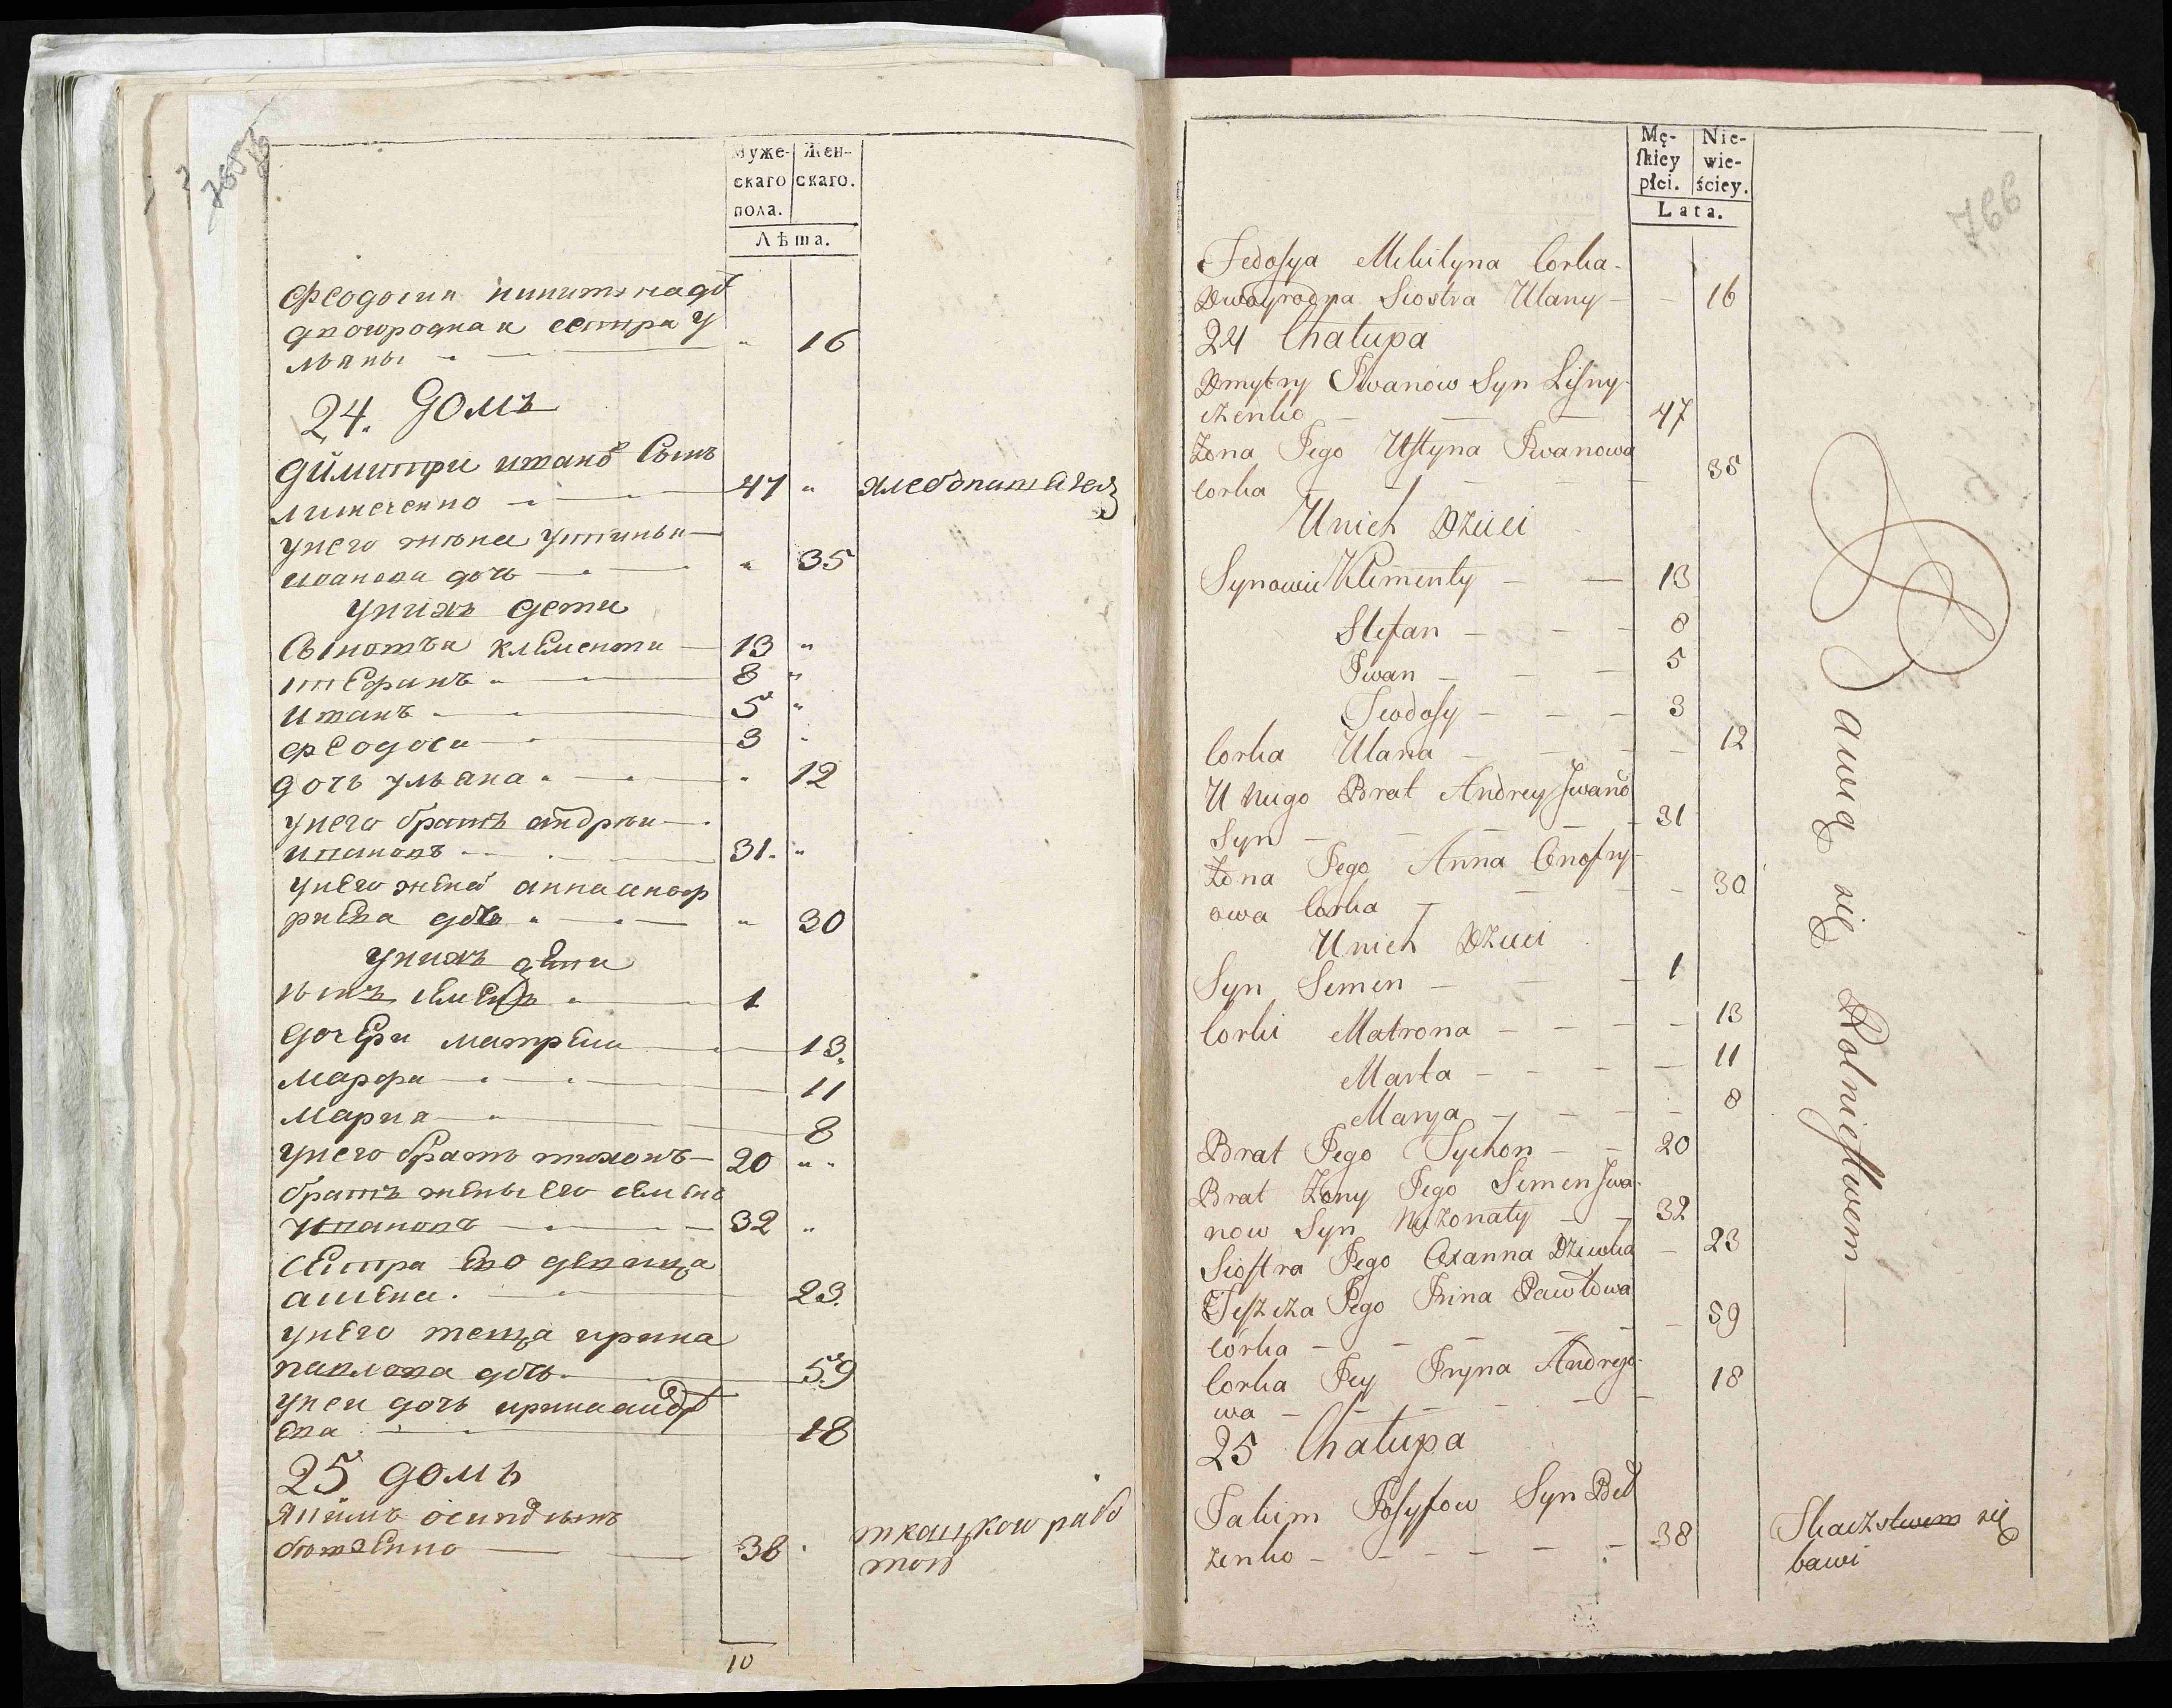 Муже-
скаго
пола.
Жен-
скаго.
Лѣта.
Феодосия никитина доч
двоюродная сестра у
льяны 16
24. Домъ
Димитри иванов Сынъ
47 хлебопашеч
у него жена устинья
иванова дочь 35
у нихъ дети
Сыновья климентии 13
стефанъ 8
Иванъ 5
феодоси 3
дочь ульяна 12
у него братъ андреи
ивановъ 31
у него жена анна аноф
риева дочь 30
у нихъ дети
сынъ семенъ 1
дочери матрена 13
марфа 11
мария 8
у него братъ тихонъ 20
братъ жены его семенъ
ивановъ 32
сестра его девица
23
у него теща ирина
павлова дочь 59
у неи дочь ирина андр
ева 18
25 домъ
якимъ осипов сынъ
38 ткацкою рабо
тою
10
766
Mę-
skiey
płci.
Nie-
wie-
ściey.
Lata.
Fedosya Mikityna Corka
Dwoyrodna Siostra Ulany 16
24 Chałupa
Dmytry Iwanow Syn Lisny-
czenko 47
Żona Jego Ustyna Iwanowa
corka 35
U nich Dzieci
Synowie Klimenty 13
Stefan 8
Iwan 5
Teodosy 3
Corka Ulana 12
U Niego Brat Andrey Iwano
Syn 31
Żona Jego Anna Onofry-
owa Corka 30
U nich Dzieci
Syn Semen 1
Corki Matrona 13
Marta 11
Marya 8
Brat Jego Tychon 20
Brat Żony Jego Semen Iwa-
now Syn Nieżonaty 32
Siostra Jego Oxanna Dziewka 23
Teszcza Jego Irina Pawłowa
corka 59
Corka Jey Iryna Andrejo-
wa 18
25 Chałupa
Jakim Josyfow Syn Boł
żenko 38
Bawią się Rolnictwem
Tkactwem się
bawi